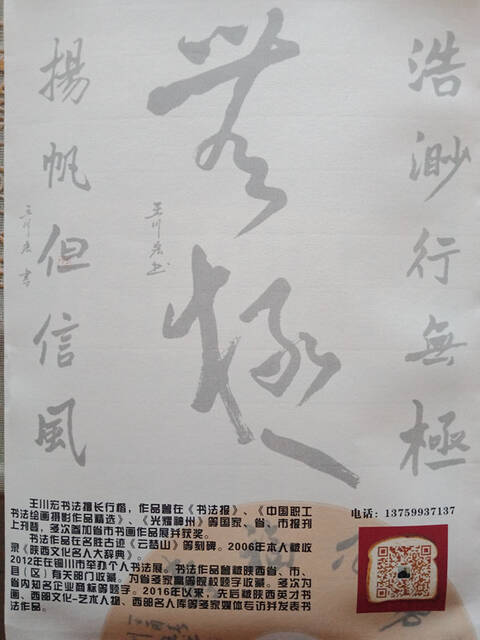 浩渺行無極
無極
王川宏书
揚帆但信風
王川宏書
王川宏书法擅长行楷，作品曾在《书法报》、《中国职工
书法绘画摄影作品精选》、《光耀神州》等国家、省、市报刊
上刊登，多次参加省市书画作品展并获奖。
书法作品在名胜古迹《云梦山》等刻碑。2006年本人被收
录《陕西文化名人大辞典》。
2012年在铜川市举办个人书法展。书法作品曾被陕西省、市、
县（区）有关部门收藏。为省多家高等院校题字收藏。多次为
省内知名企业商标等题字。2016年以来，先后被陕西英才书
画、西部文化-艺术人物、西部名人库等多家媒体专访并发表书
法作品。
电话：13759937137